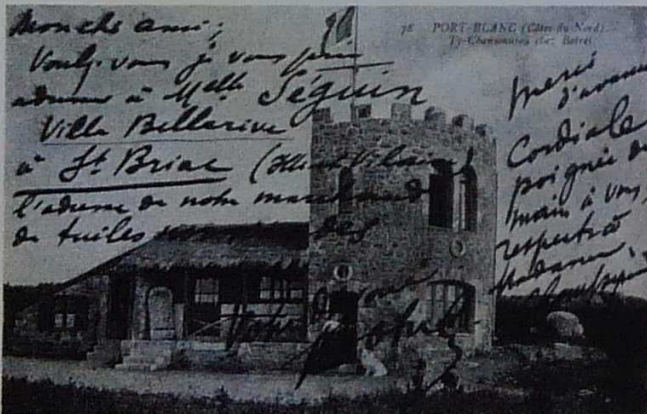 78 PORT-BLANC (Côtes-du-Nord)
Ty-Chansonniou (chez Botrel)
Mon che ami;
Voulez-vous je vous prie
adresser à Melle Séguin
Villa Bellarive
à St Briac (Ille et Vilaine)
l'adresse de notre marchand
de tuiles
Votre dévoué
merci
d'avance
Cordiale
poignée de
main à vous,
respects à
Madame